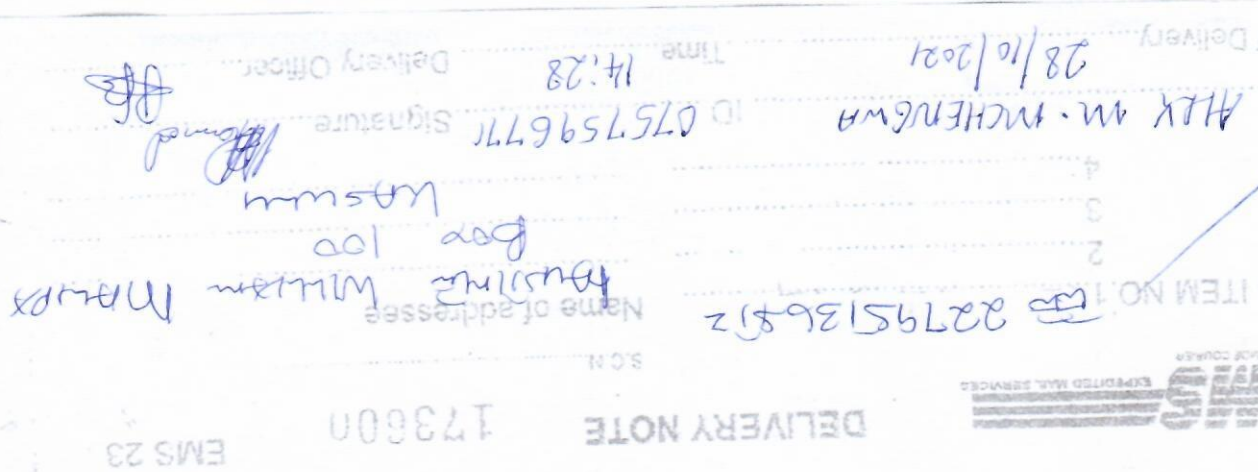 EMS 23
EMS
EXPEDITED MAIL SERVICES
DELIVERY NOTE 173600
S.C.N
ITEM NO. 1 227951368TZ Name of addressee
WILLIAM
2
BOX 100
3
KASULU
4
ALEX M. MCHENGWA ID 0757596771 Signature
Delivery 28/10/2021 Time 14:28 Delivery Officer